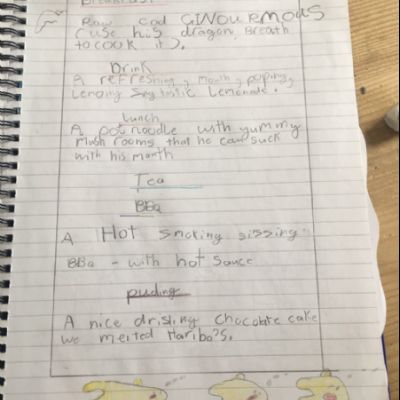 Breakfast
Raw cod GINOURMOUS
(use his dragon breath
to cook it).
Drink
A refreshing, mouth, popping,
Lemony Lemonade.
Lunch
A pot noodle with yummy
mush rooms that he can suck
with his mouth
Tea
BBQ
A Hot smoking sissing
BBQ - with hot sauce
puding
A nice drisling chocolate cake
we melted Haribo's.